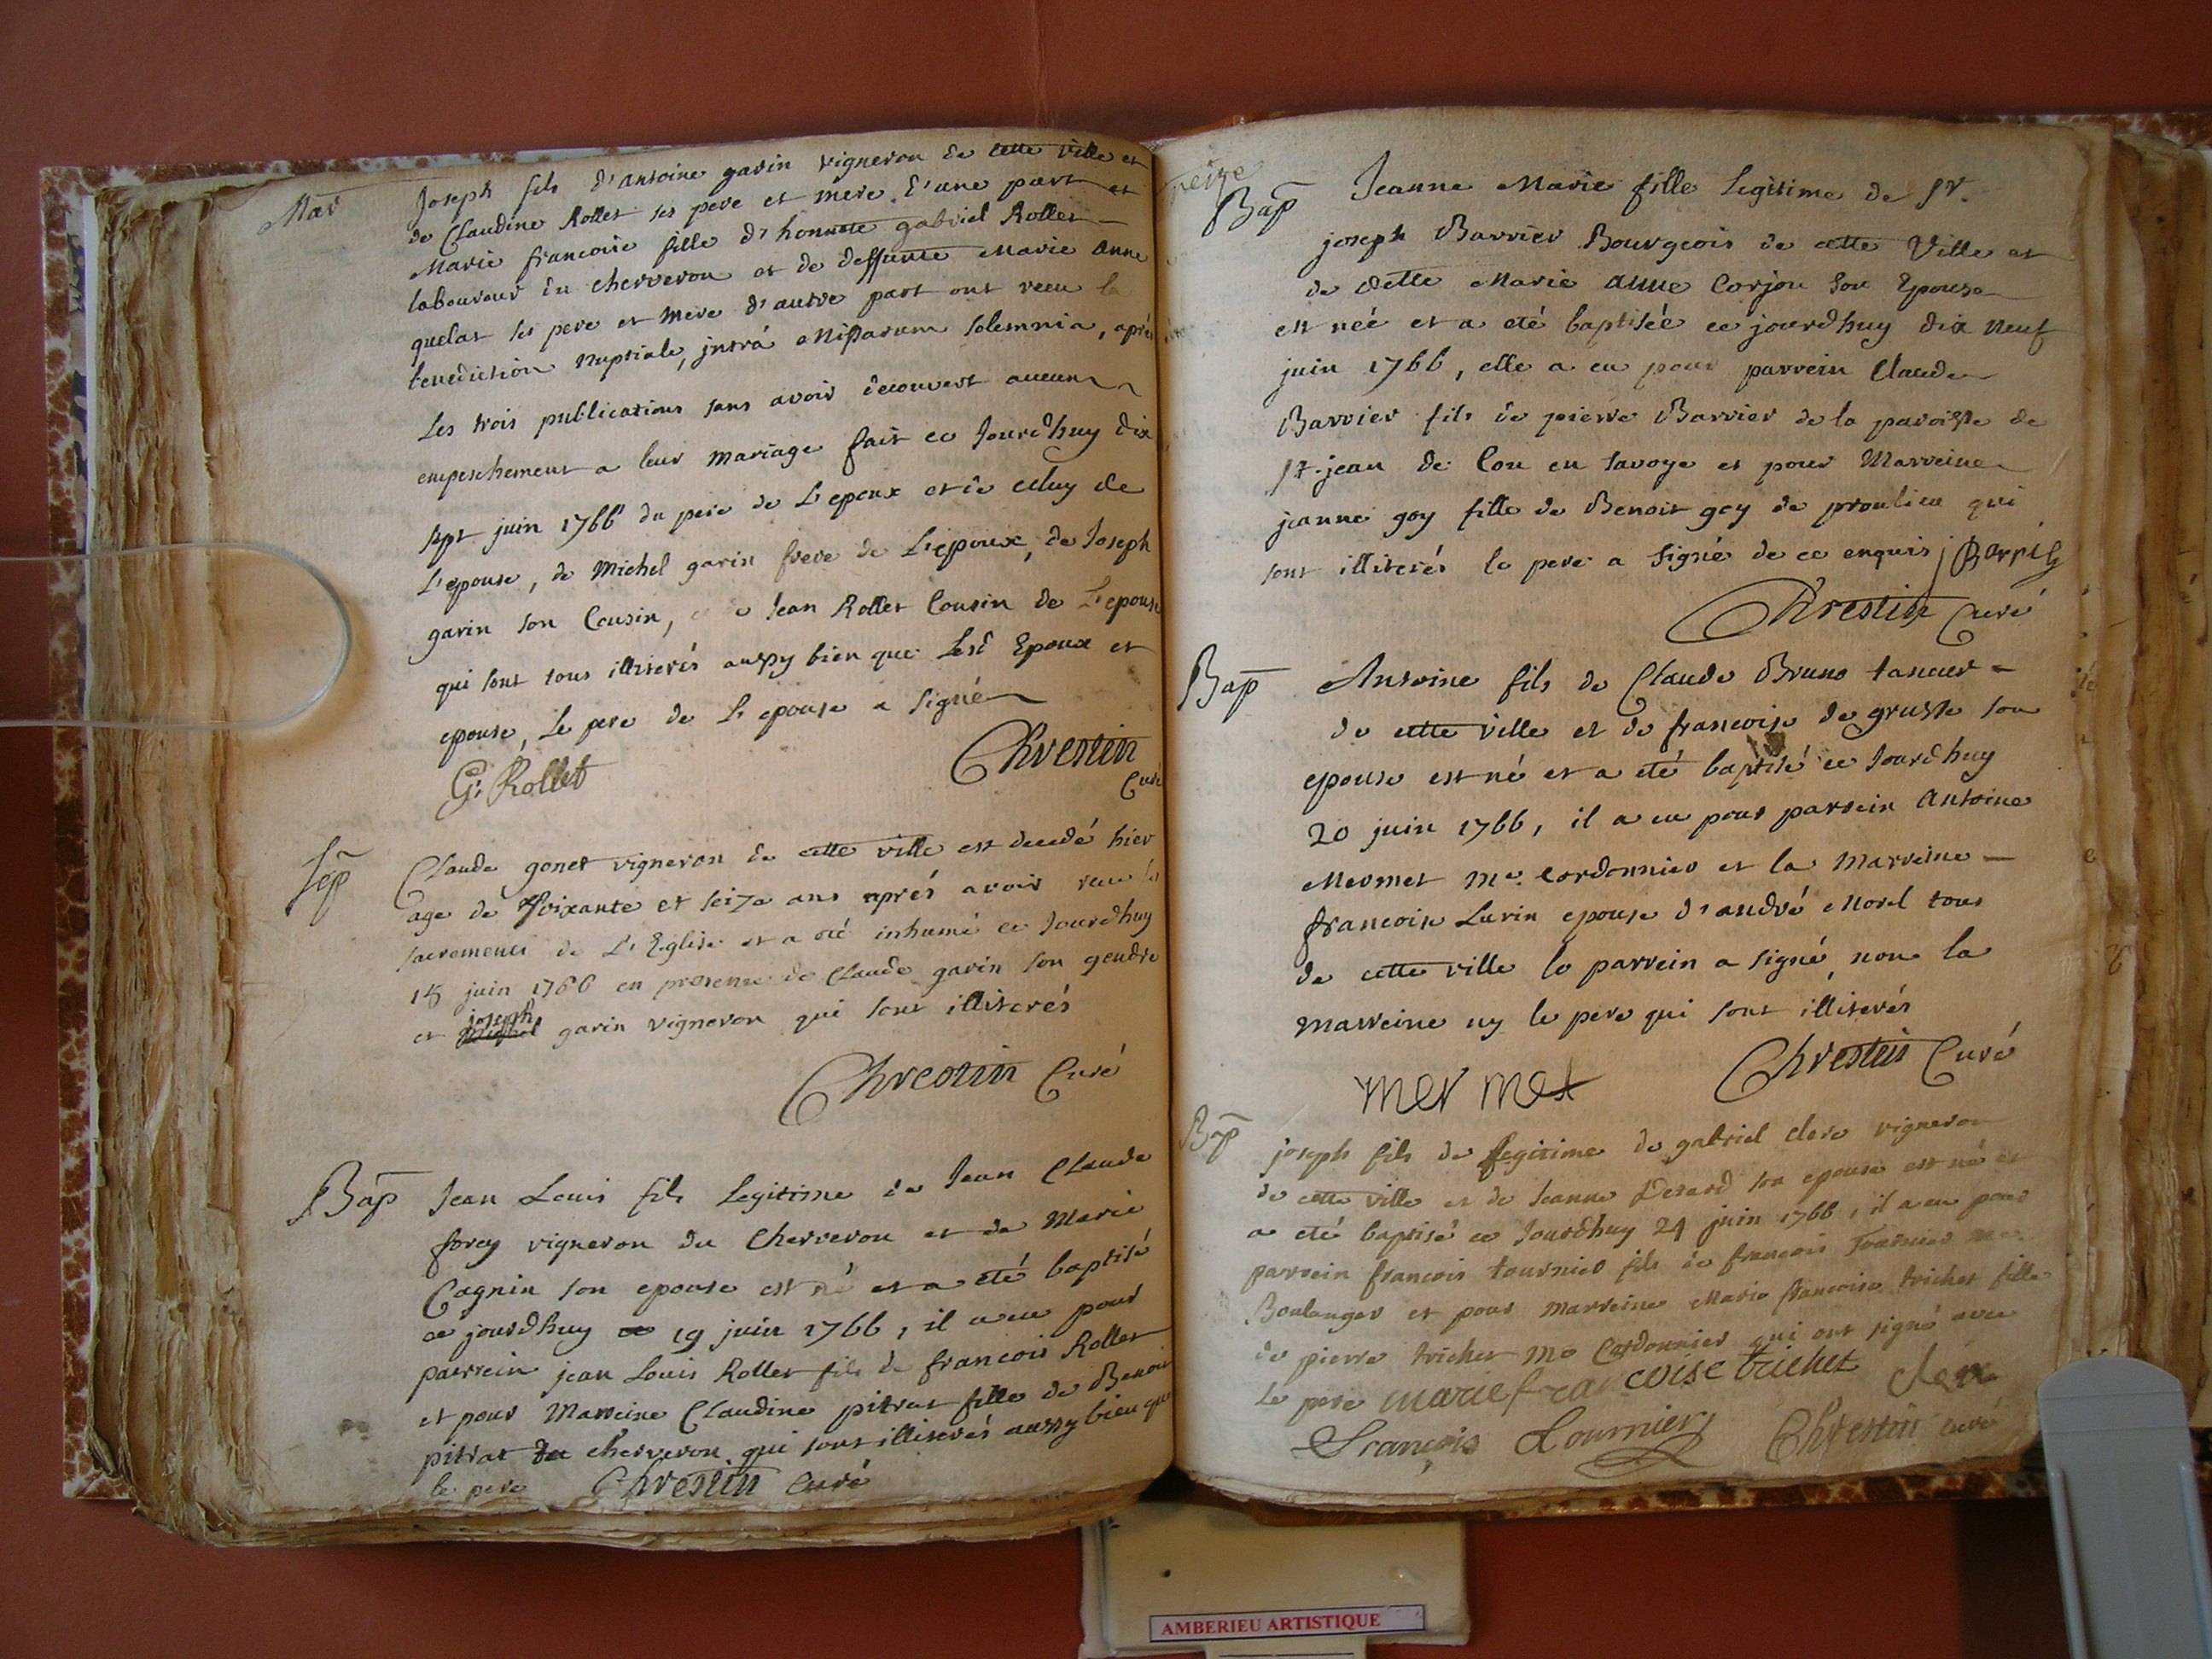 Mar Joseph fils d'antoine garin vigneron de cette ville et
de Claudine Rollet ses pere et mere d'une part et
Marie francoise fille d'honnete gabriel Rollet
laboureur du cherveron et de deffunte Marie anne
quelat ses pere et mere d'autre part ont receu la
benediction nuptiale, intrá Missarum solemnia, aprés
Les trois publications sans avoir decouvert aucun
empeschement a leur mariage fait ce Jourdhuy dix
sept juin 1766 du pere de L'epoux et de celuy de
L'epouse, de Michel garin frere de L'epoux, de Joseph
garin son Cousin, Jean Rollet Cousin de L'epouse
qui sont tous illiterés aussy bien que Lesd Epoux et
epouse, Le pere de L'epouse a signé
G. Rollet Chrestin
Curé
Sep Claude gonet vigneron de cette ville est decedé hier
age de soixante et seize ans aprés avoir receu les
sacremens de L'Eglise et a eté inhumé ce Jourdhuy
18 juin 1766 en presence de Claude garin son gendre
joseph
et garin vigneron qui sont illiterés
Chrestin Curé
Bap Jean Louis fils Legitime de Jean Claude
forey vigneron du Cherveron et de Marie
Cagnin son epouse est né et a eté baptisé
ce jourdhuy 19 juin 1766, il a eu pour
parrein jean Louis Rollet fils de francois Rollet
et pour Marreine Claudine pitrat fille de Benoit
pitrat du cherveron qui sont illiterés aussy bien que
le pere Chrestin Curé
Bap Jeanne Marie fille Legitime de Sr.
joseph Barrier Bourgeois de cette Ville et
de dette Marie anne Corjon son Epouse
est neé et a eté baptiseé ce jourdhuy dix neuf
juin 1766, elle a eu pour parrein Claude
Barrier fils de pierre Barrier de la paroisse de
St. jean de Cou en savoye et pour Marreine
jeanne goy fille de Benoit goy de proulieu qui
sont illiterés le pere a signé de ce enquis j Barrie
Chrestin Curé
Bap Antoine fils de Claude Bruno taneur
de cette ville et de francoise de grusse son
epouse est né et a eté baptisé ce Jourdhuy
20 juin 1766, il a eu pour parrein antoine
Mermet Me. Cordonnier et la Marreine
francoise Lurin epouse d'andré Morel tous
de cette ville le parrein a signé, non la
marreine ny le pere qui sont illiterés
mermet Chrestin Curé
Bap joseph fils de legitime de gabriel clerc vigneron
de cette ville et de Jeanne Derard son epouse est né et
a eté baptisé ce Jourdhuy 24 juin 1766, il a eu pour
parrein francois tournier fils de francois Tournier me
Boulanger et pour marreine Marie francoise trichet fille
de pierre trichet Me Cordonnier qui ont signé avec
Le pere marie francoise trichet clerc
François Tournier Chrestin curé
AMBERIEU ARTISTIQUE